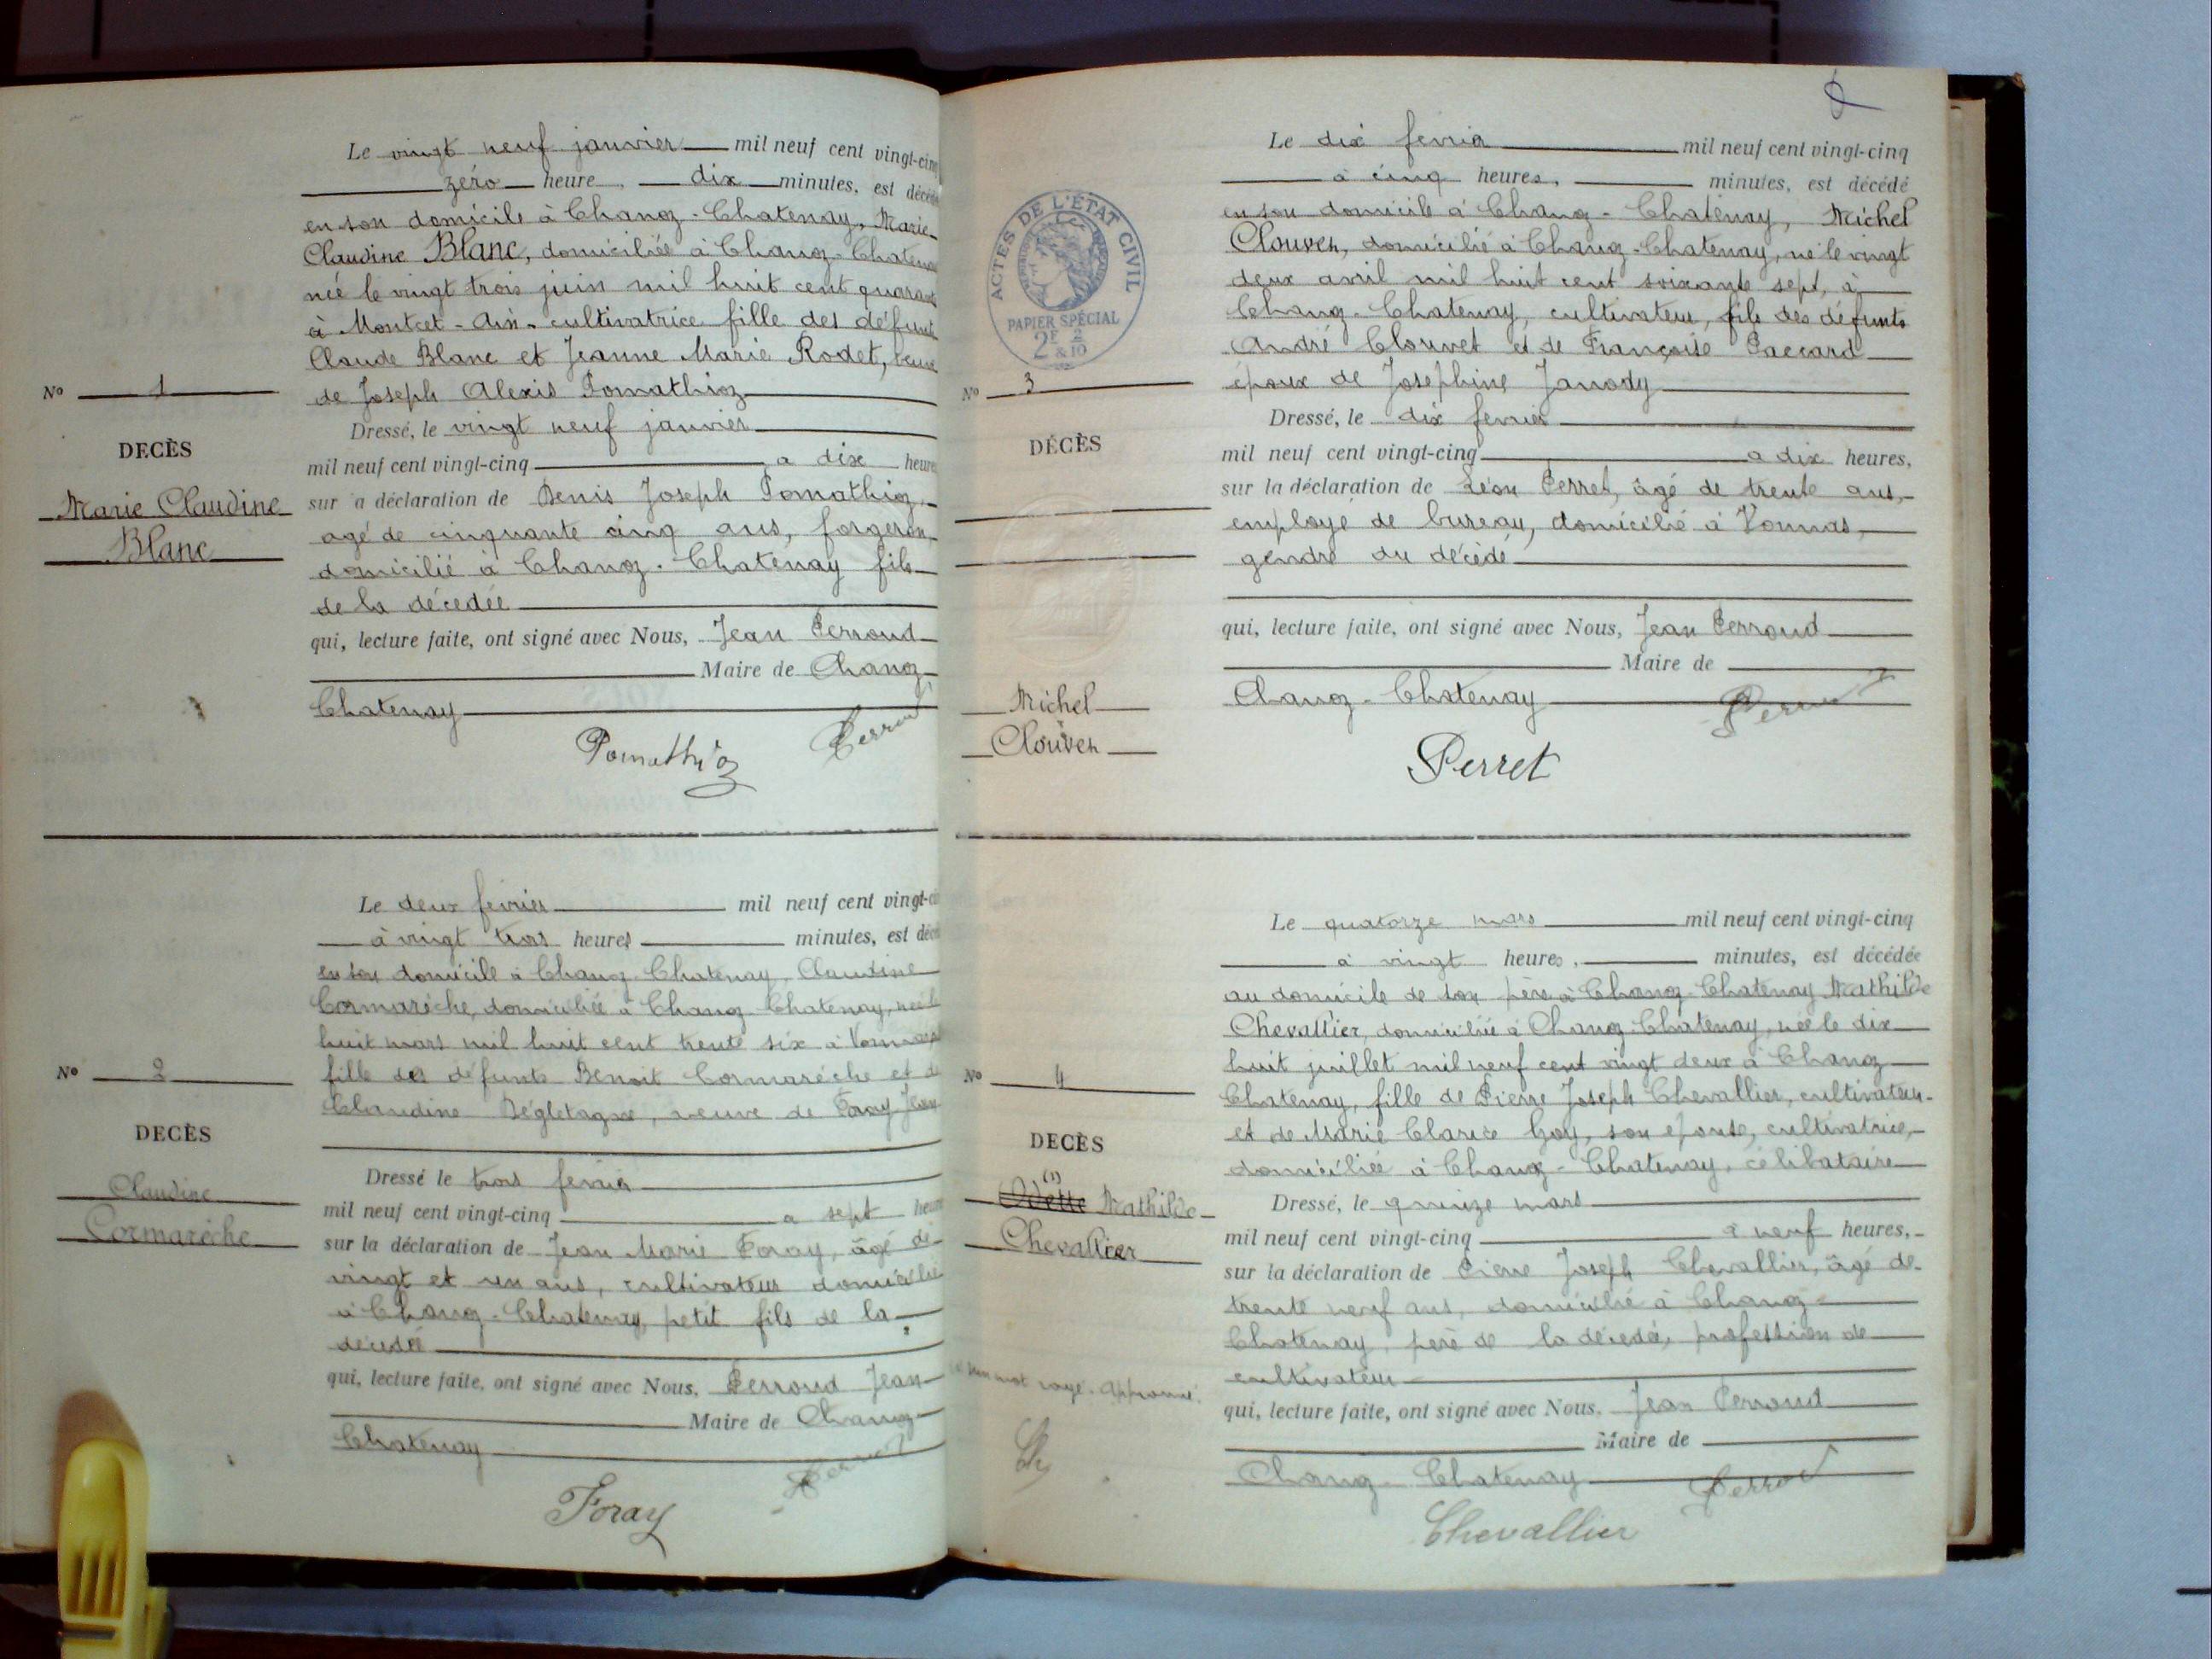 Le vingt neuf janvier mil neuf cent vingt-cinq
zéro heure, dix minutes, est décédé
en son domicile à Chanoz-Chatenay, Marie-
Claudine Blanc, domiciliée à Chanoz-Chatenay
née le vingt trois juin mil huit cent quarante
à Montcet-Ain-cultivatrice fille des défunts
Claude Blanc et Jeanne Marie Rodet, veuve
de Joseph Alexis Pomathioz
No 1
DECÈS
Marie Claudine
Blanc
Dressé, le vingt neuf janvier
mil neuf cent vingt-cinq a dix heures
sur a déclaration de Denis Joseph Pomathioz,
agé de cinquante cinq ans, forgeron
domicilié à Chanoz-Chatenay fils
de la décedée
qui, lecture faite, ont signé avec Nous, Jean Perroud
Maire de Chanoz
Chatenay
Pomathioz Perroud
Le deux fevrier mil neuf cent vingt-cinq
à vingt trois heures minutes, est décédé
en son domicile à Chanoz-Chatenay, Claudine
Cormarèche, domiciliée à Chanoz Chatenay, née le
huit mars mil huit cent trente six à Vonnas
fille des défunts Benoit Cormarèche et de
Claudine veuve de Foray Jean
No 2
DECÈS
Claudine
Cormarèche
Dressé le trois fevrier
mil neuf cent vingt-cinq a sept heures
sur la déclaration de Jean Marie Foray, âgé de
vingt et un ans, cultivateur domicilié
à Chanoz-Chatenay, petit fils de la
décedée
qui, lecture faite, ont signé avec Nous, Perroud Jean
Maire de Chanoz
Chatenay
Foray Perroud
ACTES DE L'ÉTAT CIVIL
PAPIER SPÉCIAL
2F 2 & 10
Le dix fevrier mil neuf cent vingt-cinq
à cinq heures, minutes, est décédé
en son domicile à Chanoz-Chatenay, Michel
Clouvet, domicilié à Chanoz-Chatenay, né le vingt
deux avril mil huit cent soixante sept, à
Chanoz-Chatenay, cultivateur, fils des défunts
André Clouvet et de Françoise Paccard
époux de Josephine Janody
No 3
DÉCÈS
Michel
Clouvet
Dressé, le dix fevrier
mil neuf cent vingt-cinq a dix heures,
sur la déclaration de Léon Perret, âgé de trente ans,
employé de bureau, domicilié à Vonnas,
gendre du décédé
qui, lecture faite, ont signé avec Nous, Jean Perroud
Maire de
Chanoz-Chatenay
Perroud
Perret
Le quatorze mars mil neuf cent vingt-cinq
à vingt heures, minutes, est décédée
au domicile de son père à Chanoz-Chatenay Mathilde
Chevallier, domiciliée à Chanoz-Chatenay, née le dix
huit juillet mil neuf cent vingt deux à Chanoz
Chatenay, fille de Pierre Joseph Chevallier, cultivateur
et de Marie Clarice Goy, son épouse, cultivatrice,
domiciliée à Chanoz-Chatenay, célibataire
No 4
DECÈS
(1)
Odette Mathilde
Chevallier
un mot rayé. Approuvé.
Ch
Dressé, le quinze mars
mil neuf cent vingt-cinq à neuf heures,
sur la déclaration de Pierre Joseph Chevallier, âgé de
trente neuf ans, domicilié à Chanoz-
Chatenay, père de la décedée, profession de
cultivateur
qui, lecture faite, ont signé avec Nous, Jean Perroud
Maire de
Chanoz-Chatenay
Perroud
Chevallier